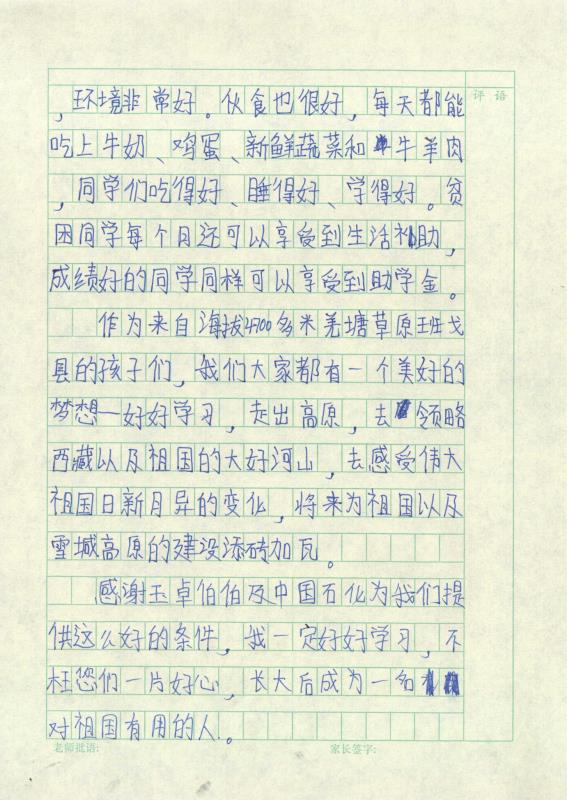 评语
，环境非常好。伙食也很好，每天都能
吃上牛奶、鸡蛋、新鲜蔬菜和牛羊肉
，同学们吃得好、睡得好、学得好。贫
困同学每个月还可以享受到生活补助，
成绩好的同学同样可以享受到助学金。
作为来自海拔4700多米羌塘草原班戈
县的孩子们，我们大家都有一个美好的
梦想—好好学习，走出高原，去领略
西藏以及祖国的大好河山，去感受伟大
祖国日新月异的变化，将来为祖国以及
雪域高原的建设添砖加瓦。
感谢玉卓伯伯及中国石化为我们提
供这么好的条件，我一定好好学习，不
枉您们一片好心，长大后成为一名
对祖国有用的人。
老师批语: 家长签字: